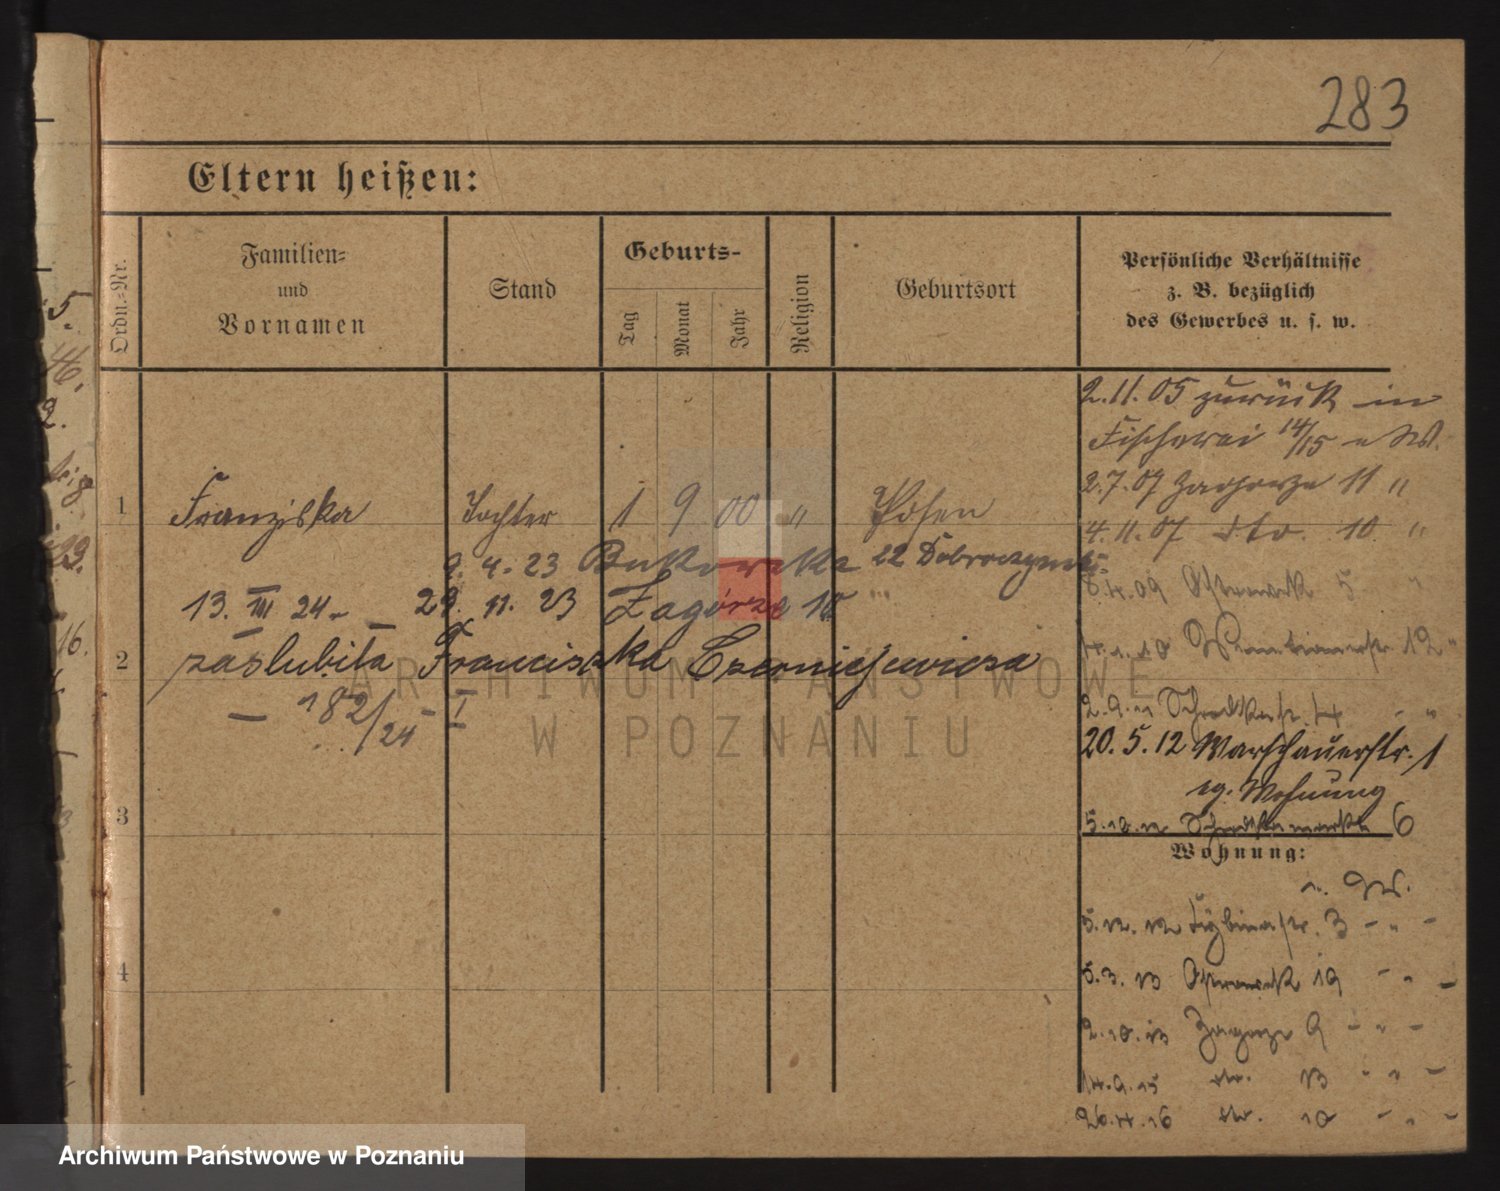 283
Eltern heißen:
Ordn.-Nr.
Familien- und Vornamen
Stand
Geburts-
Tag
Monat
Jahr
Religion
Geburtsort
Persönliche Verhältnisse
z. B. bezüglich
des Gewerbes u. s. w.
2.11.05 zurück in
Fischerei 14/15
2.7.07 Zagorze 11 "
1 Franziska Tochter 1 9 00 " Posen
4.11.07 dto. 10 "
9.4.23 Bukowska 22
8.4.09 Ostrowek 5 "
13. III 24 - 29. 11. 23 Zagórze 10 "
2 zaślubiła Franciszka Czerniejewicza
12 "
- 182/24 I
2.9.11 4 - "
20.5.12 Warschauerstr. 1
eg. Wohnung
3
5.10.12 Schrodkamarkt 6
Wohnung:
5.12.12 Cybinastr. 3 - " -
4
5.3.13 Ostrowek 19 - " -
2.10.13 Zagorze 9 - " -
14.9.15 dto. 13 " " -
26.4.16 dto. 10 - " -
ARCHIWUM PAŃSTWOWE
W POZNANIU
Archiwum Państwowe w Poznaniu